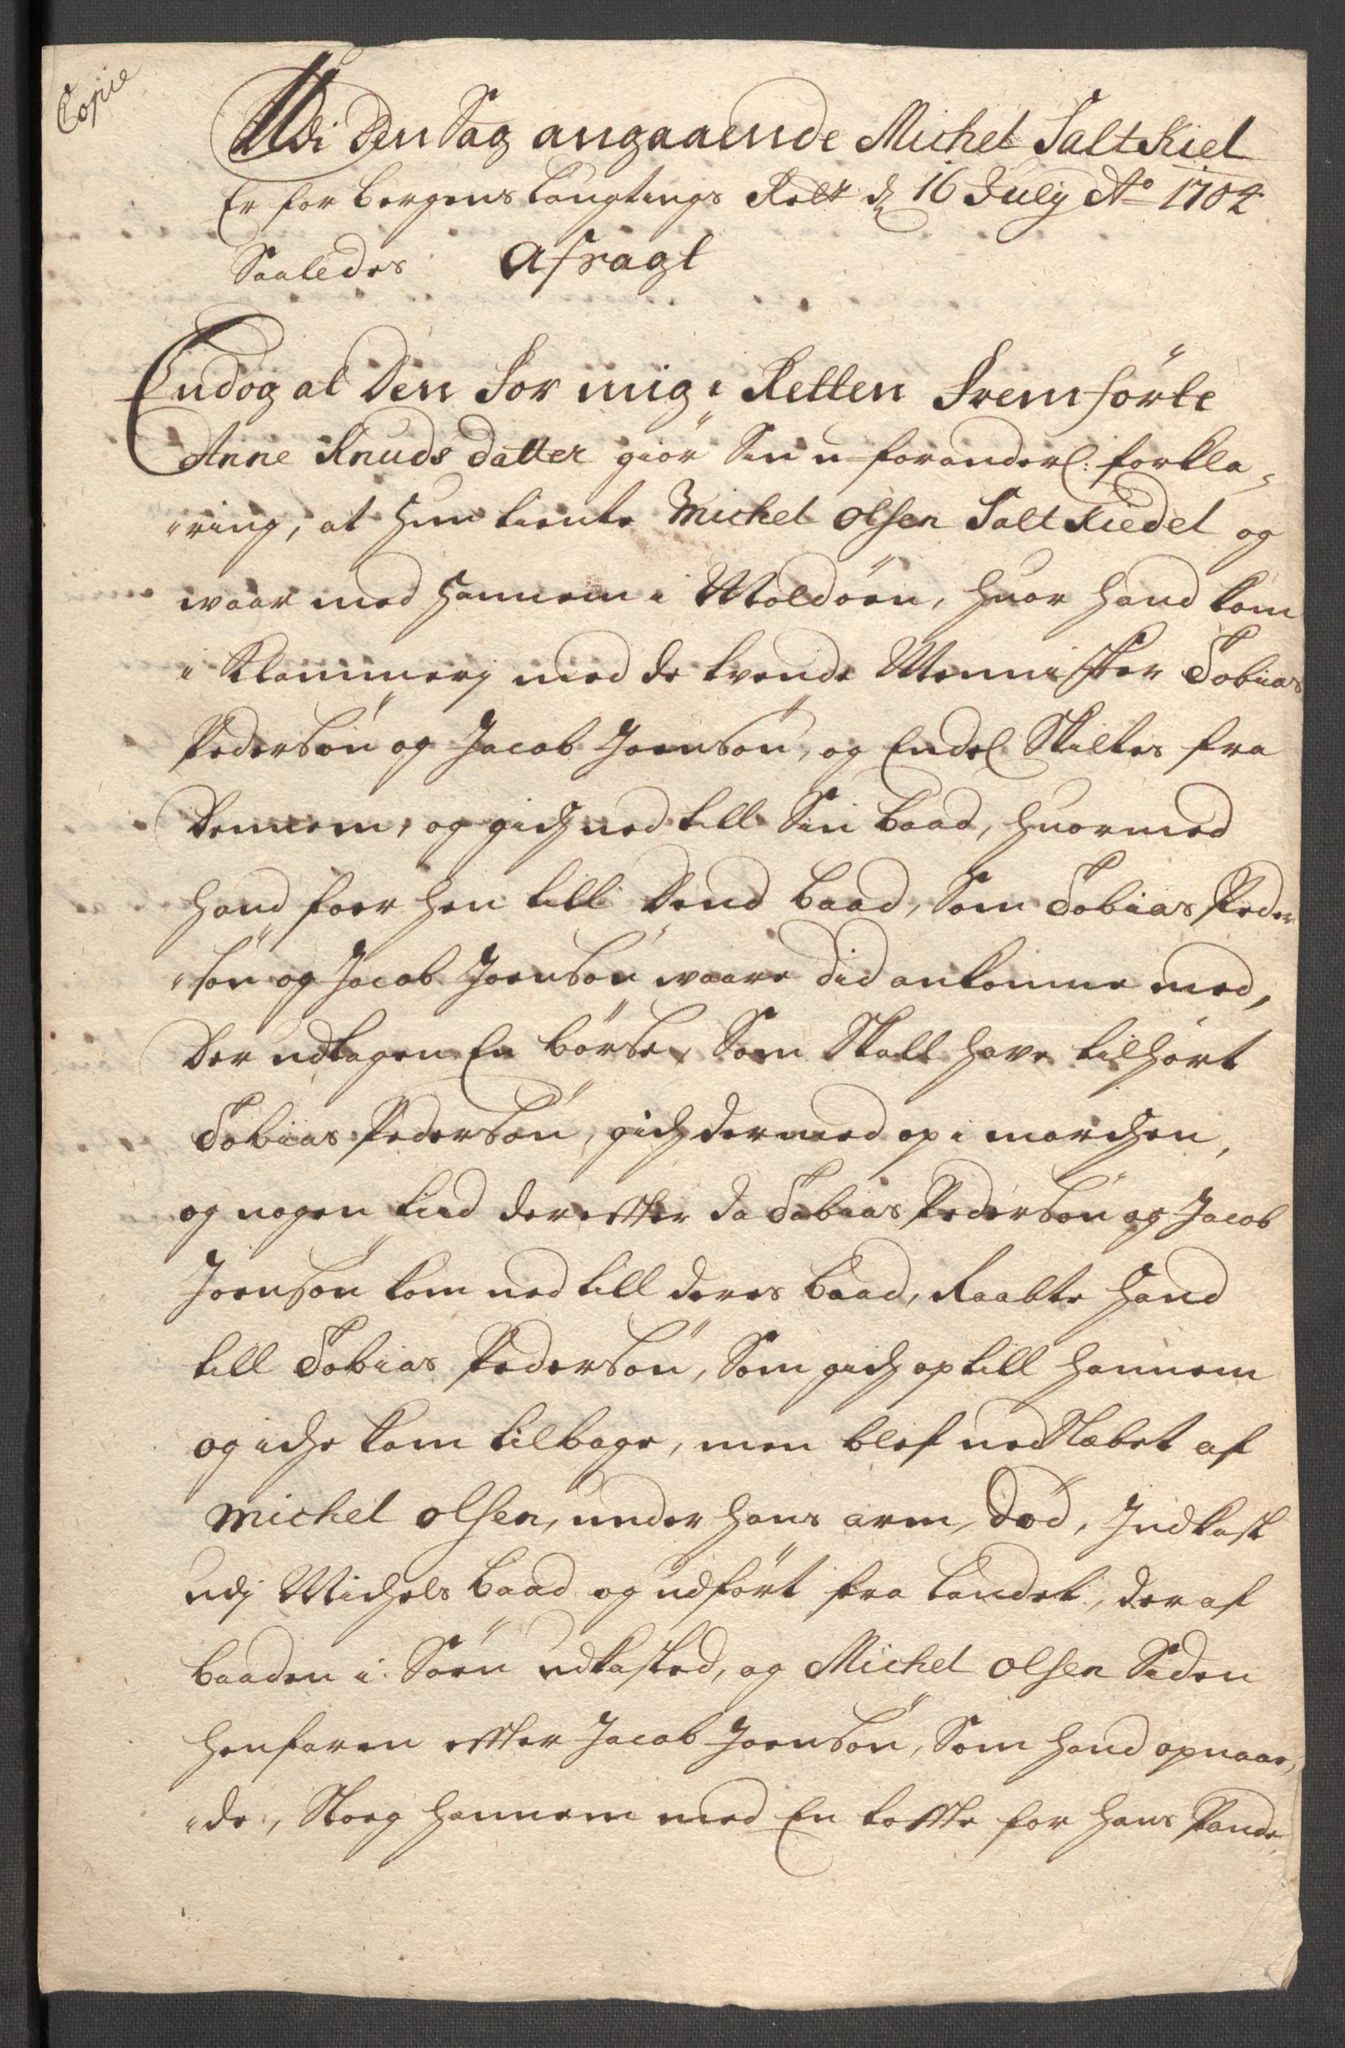 Copie
Udi Den Sag angaaende Michel Saltkiel
Er for Bergens Laugtings Rett d 16 July Ao 1704
Saaledes afsagt
Endog at Den for mig i Retten Fremförte
Anne Knuds datter giör Sin u-foranderl: forkla-
ring, at hun tiente Michel Olsen Saltkiedel og
waar med hannem i Moldöen, huor hand kom
i Klammerj med de tvende Mennisker Tobias
Pedersön og Jacob Joensön, og Endel Skiltes fra
Dennem, og gich ned till Sin baad, huormed
hand foer hen till Dend baad, Som Tobias Peder-
sön og Jacob Joensön waare did ankomne med,
Der udtagen En börse, Som Skall have tilhört
Tobias Pedersön, gich dermed op i marchen,
og nogen tiid derefter da Tobias Pedersön og Jacob
Joensön kom ned till deres baad, Raabte hand
till Tobias Pedersön, Som gich op till hannem
og iche kom tilbage, men blef nedslæbet af
Michel Olsen, under hans arm, Död, Indkast
udj Michels baad og udfört fra Landet, der af
baaden i Söen udkasted, og Michel Olsen Siden
henfaren efter Jacob Joensön, Som hand opnaae-
de, Sloeg hannem med En tofte for hans Pande